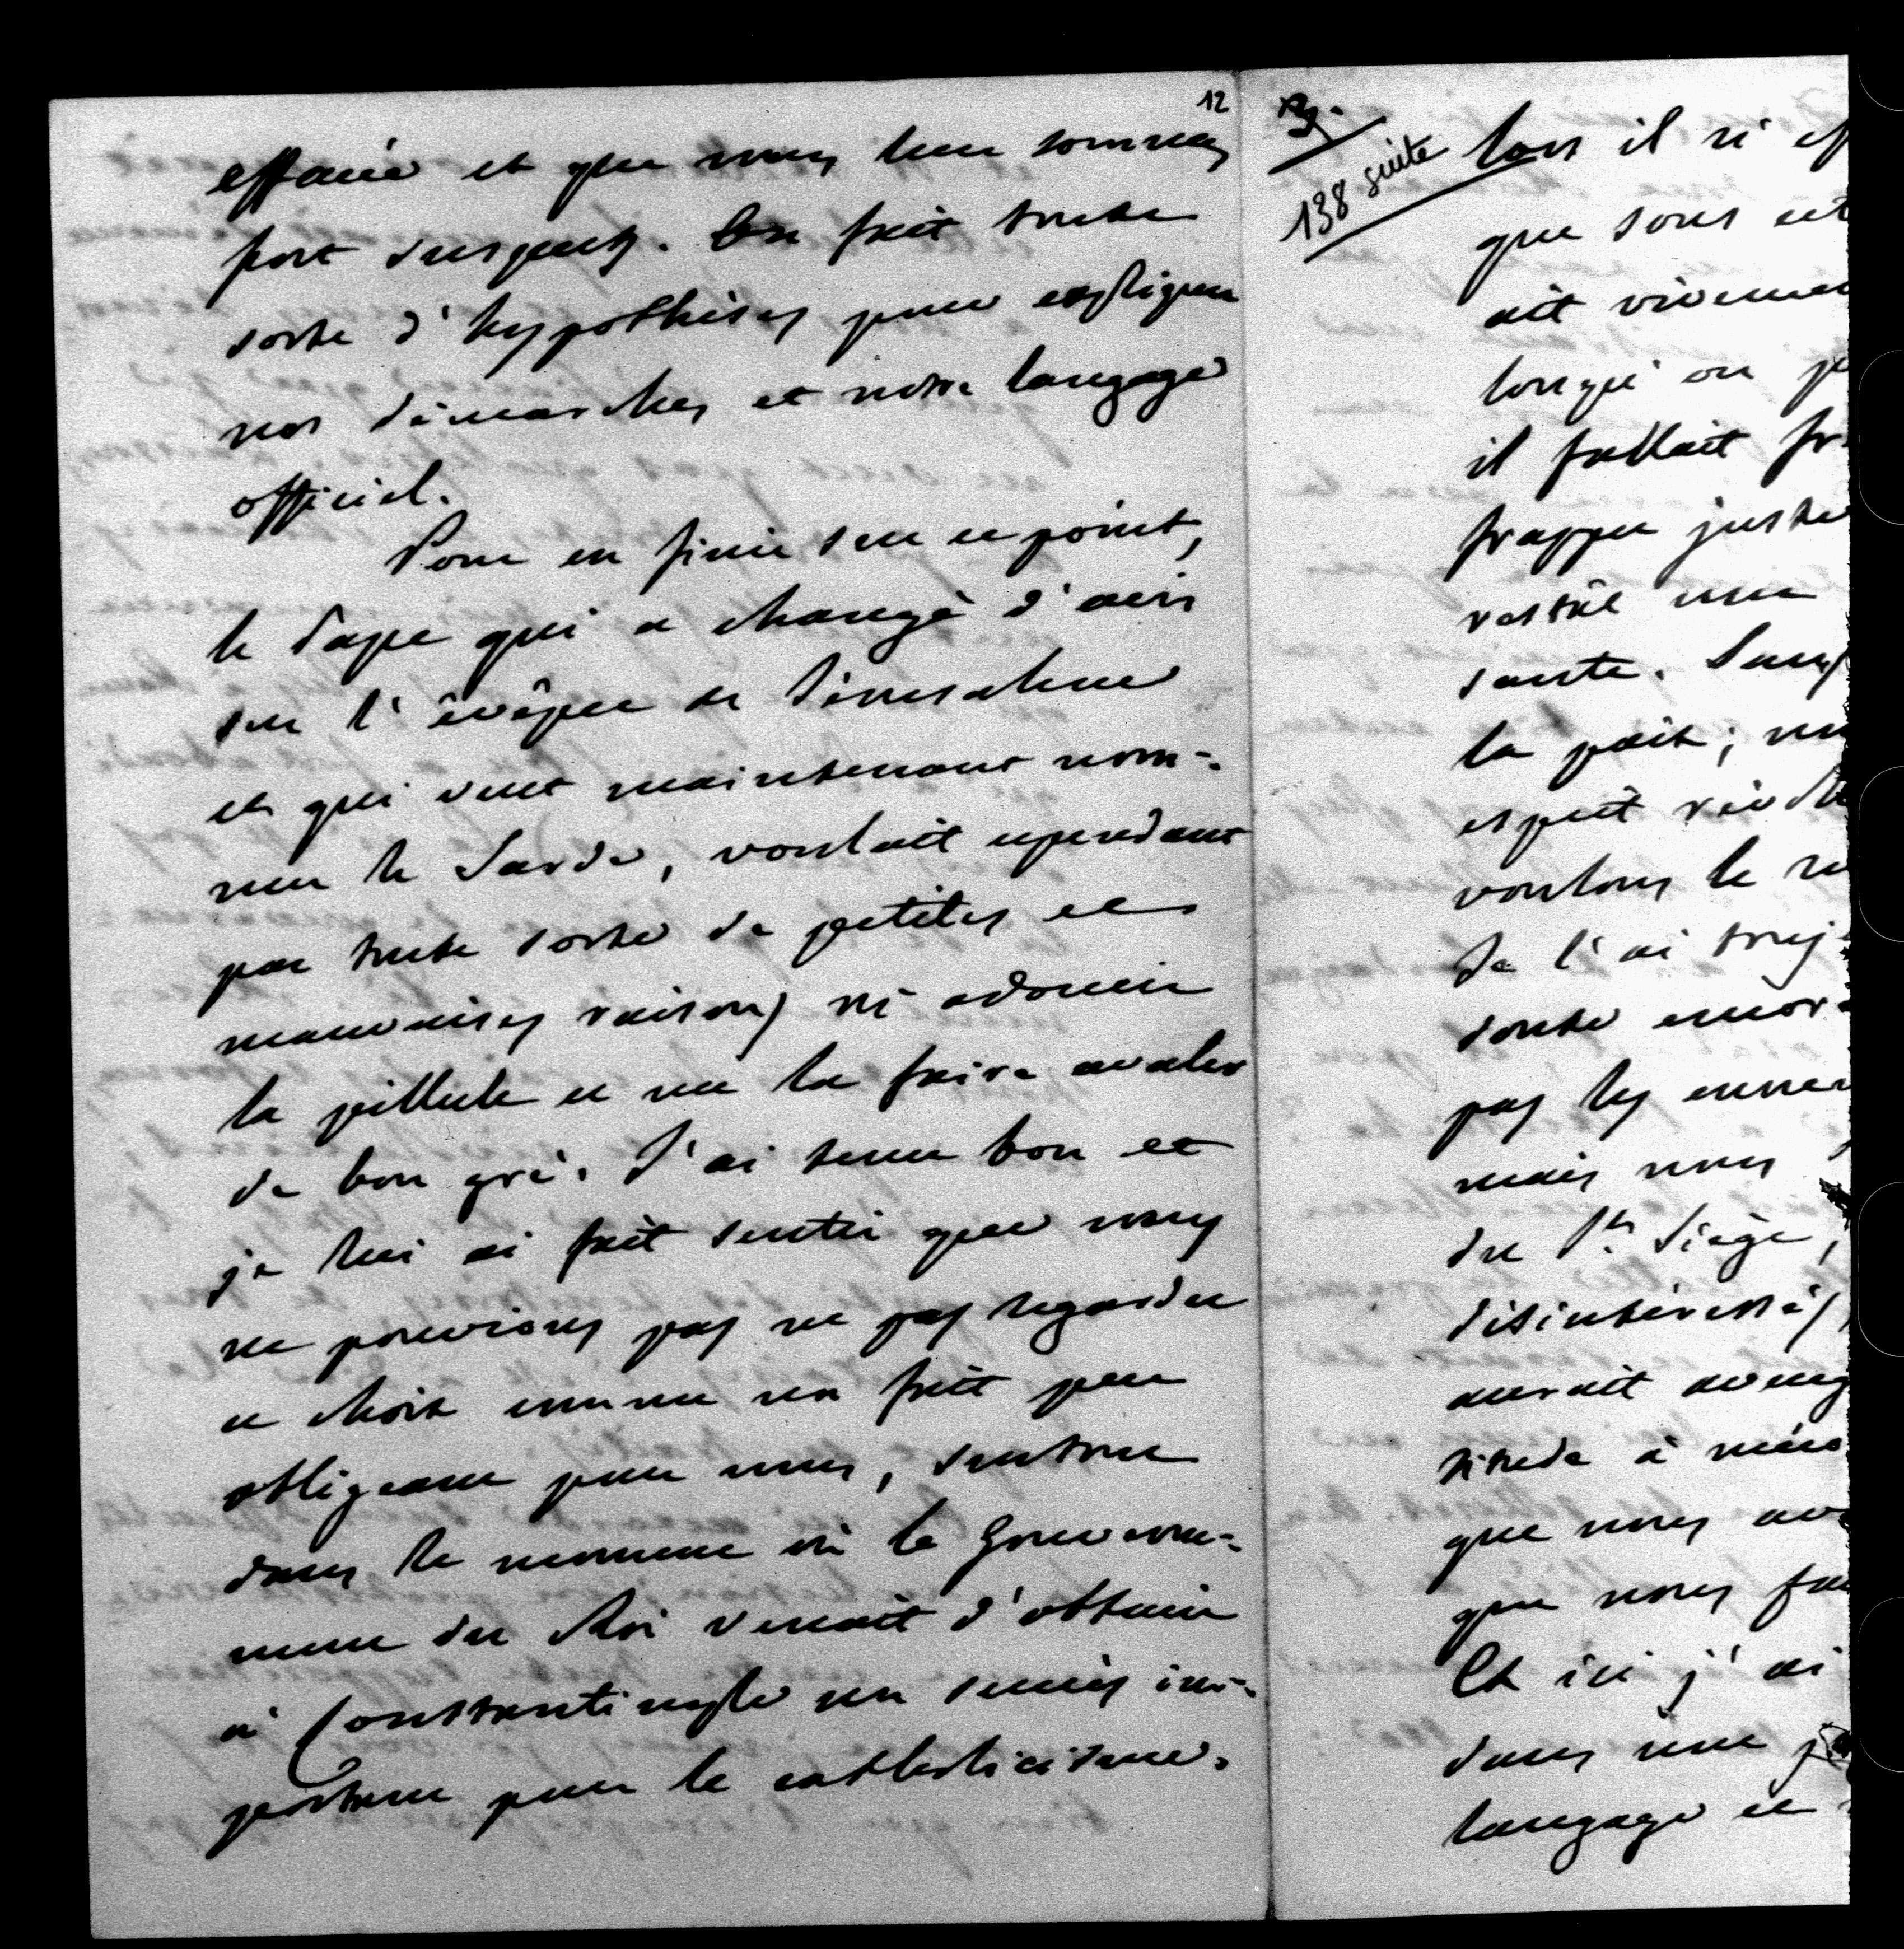 12
effarés et que nous leur sommes
fort suspects. On fait toute
sorte d'hypothèses pour expliquer
nos démarches et notre langage
officiel.
Pour en finir sur ce point,
le Pape qui a changé d'avis
sur l'évêque de Jérusalem
et qui veut maintenant nom-
mer le Sarde, voulait cependant
par toute sorte de petites et
mauvaises raisons m'adoucir
la pillule et me la faire avaler
de bon gré. J'ai tenu bon et
je lui ai fait sentir que nous
ne pouvions pas ne pas regarder
ce choix comme un fait peu
obligeant pour nous, surtout
dans le moment où le Gouverne-
ment du Roi venait d'obtenir
à Constantinople un succès im-
portant pour le catholicisme.
3.
138 suite
lors il n'
que sous
ait
lorsqu'on
il fallait
frapper juste
une
sante.
la paix;
esprit
voulons le
Je l'ai
doute
pas les
mais nous
du St. Siège,
désintéressés
aurait
titude à
que nous
que nous
Et ici j'ai
dans une
langage et